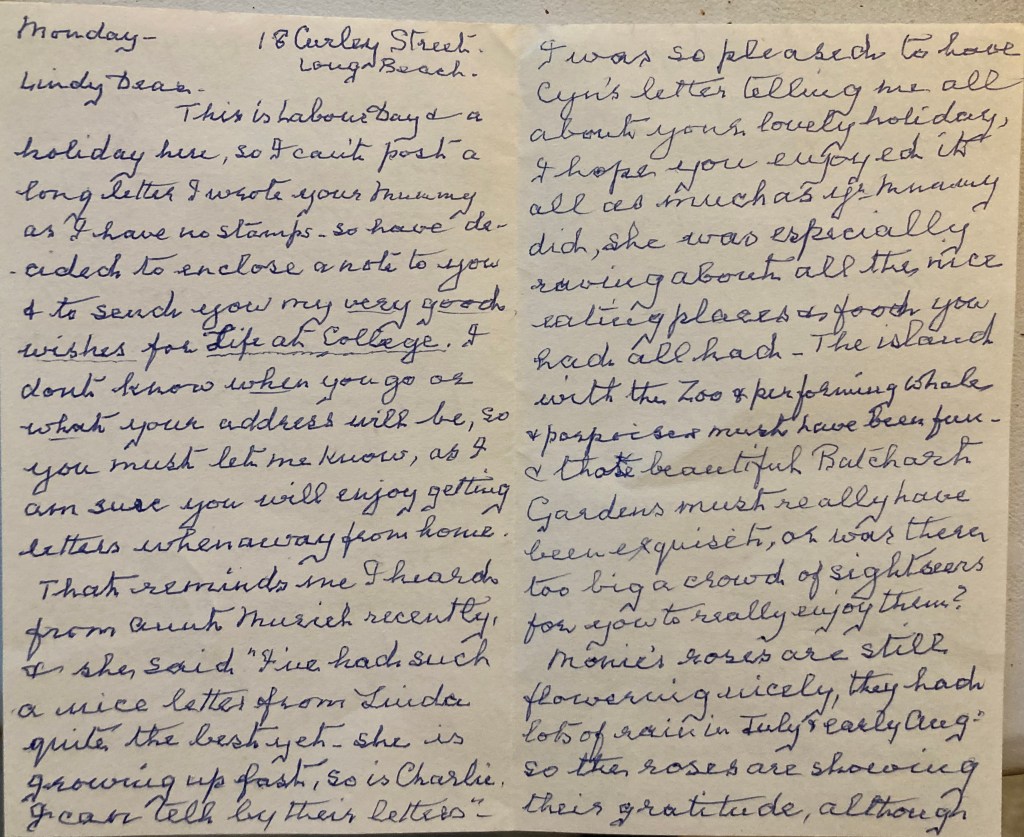 Monday -
18 Curley Street.
Long Beach.
Lindy Dear.
This is Labour Day & a
holiday here, so I can't post a
long letter I wrote your Mummy
as I have no stamps - so have de-
- cided to enclose a note to you
& to send you my very good
wishes for Life at College. I
dont know when you go or
what your address will be, so
you must let me know, as I
am sure you will enjoy getting
letters when away from home.
That reminds me I heard
from Aunt Muriel recently,
& she said "I've had such
a nice letter from Linda
quite the best yet - she is
growing up fast, so is Charlie.
I can tell by their letters" -
I was so pleased to have
Cyn's letter telling me all
about your lovely holiday,
I hope you enjoyed it
all as much as yr Mummy
did, she was especially
raving about all the nice
eating places & food you
had all had - The island
with the Zoo & performing whale
& porpoises must have been fun -
& those beautiful Batchart
Gardens must really have
been exquisite, or was there
too big a crowd of sightseers
for you to really enjoy them?
Monie's roses are still
flowering nicely, they had
lots of rain in July & early Aug:
so the roses are showing
their gratitude, although